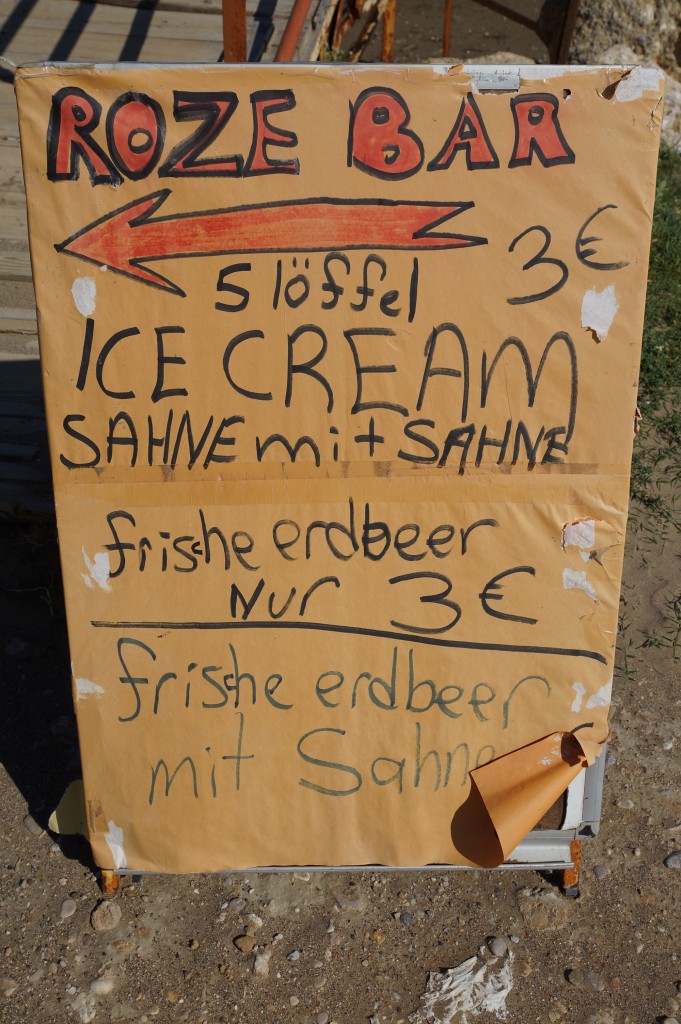 ROZE BAR
5 löffel 3€
ICE CREAM
SAHNE mit SAHNE
frische erdbeer
Nur 3€
frische erdbeer
mit Sahne